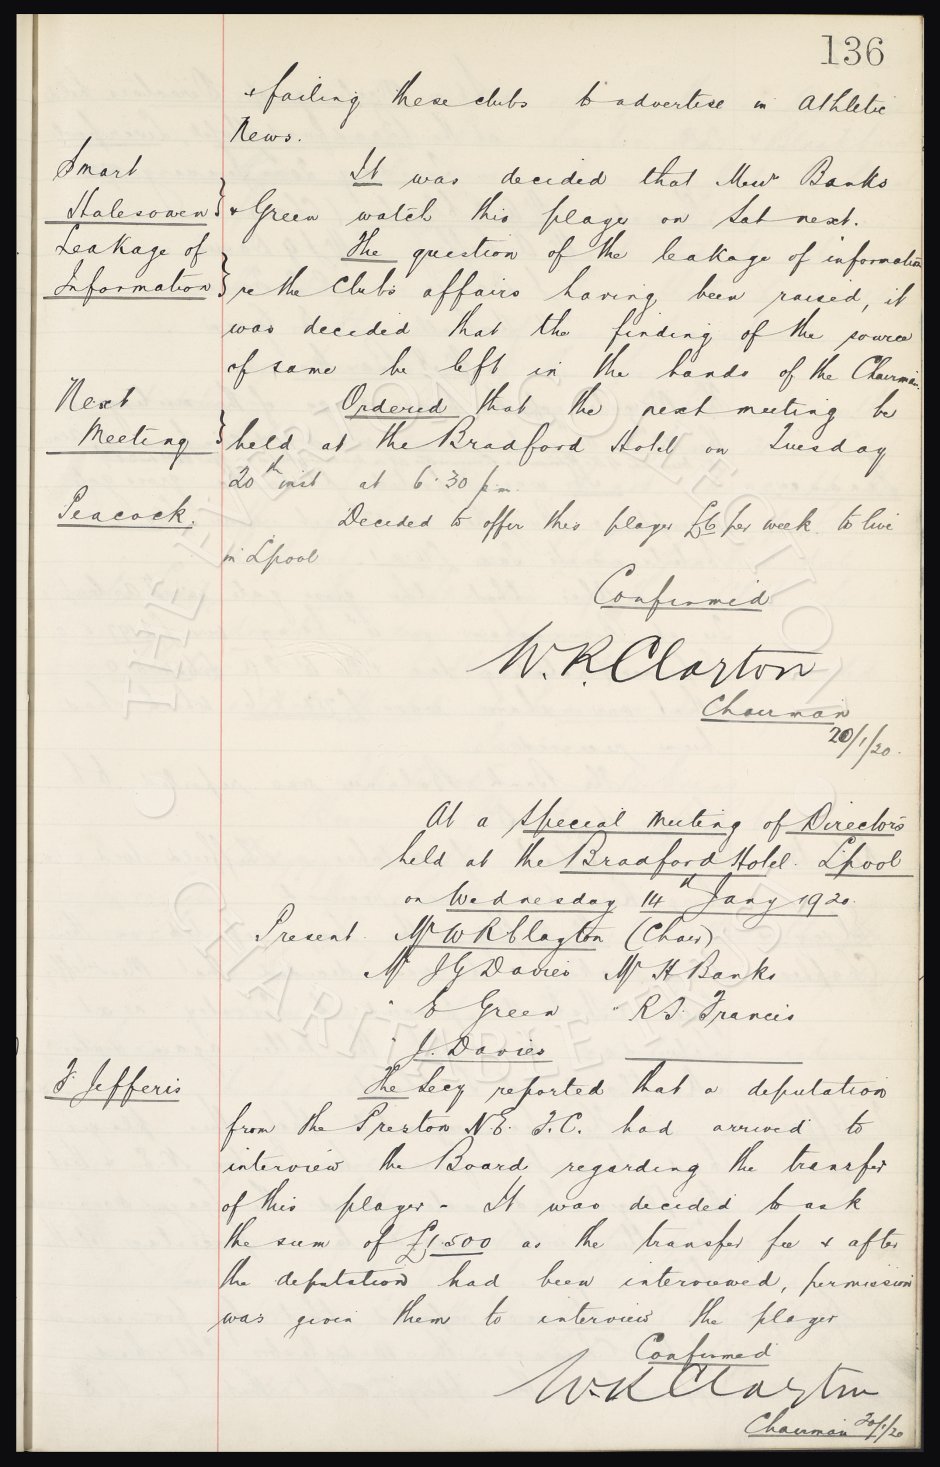 136
& failing these clubs to advertise in Athletic
News.
Smart
Halesowen
It was decided that Messrs Banks
& Green watch this player on Sat next.
Leakage of
Information
The question of the leakage of information
re the Club's affairs having been raised, it
was decided that the finding of the source
of same be left in the hands of the Chairman.
Next
Meeting
Ordered that the next meeting be
held at the Bradford Hotel on Tuesday
20th inst at 6.30 p.m.
Peacock.
Decided to offer this player £6 per week to live
in L'pool
Confirmed
W.R. Clayton
Chairman
20/1/20.
At a special meeting of Directors
held at the Bradford Hotel. L'pool
on Wednesday 14th Jany 1920.
Present. Mr W R Clayton (Chair)
Mr J G Davies Mr H Banks
" E Green " R S. Francis
" J. Davies
F. Jefferis
The Secy reported that a deputation
from the Preston N.E. F.C. had arrived to
interview the Board regarding the transfer
of this player - It was decided to ask
the sum of £1500 as the transfer fee & after
the deputation had been interviewed, permission
was given them to interview the player
Confirmed
W.R Clayton
Chairman 20/1/20
THE EVERTON COLLECTION
CHARITABLE TRUST